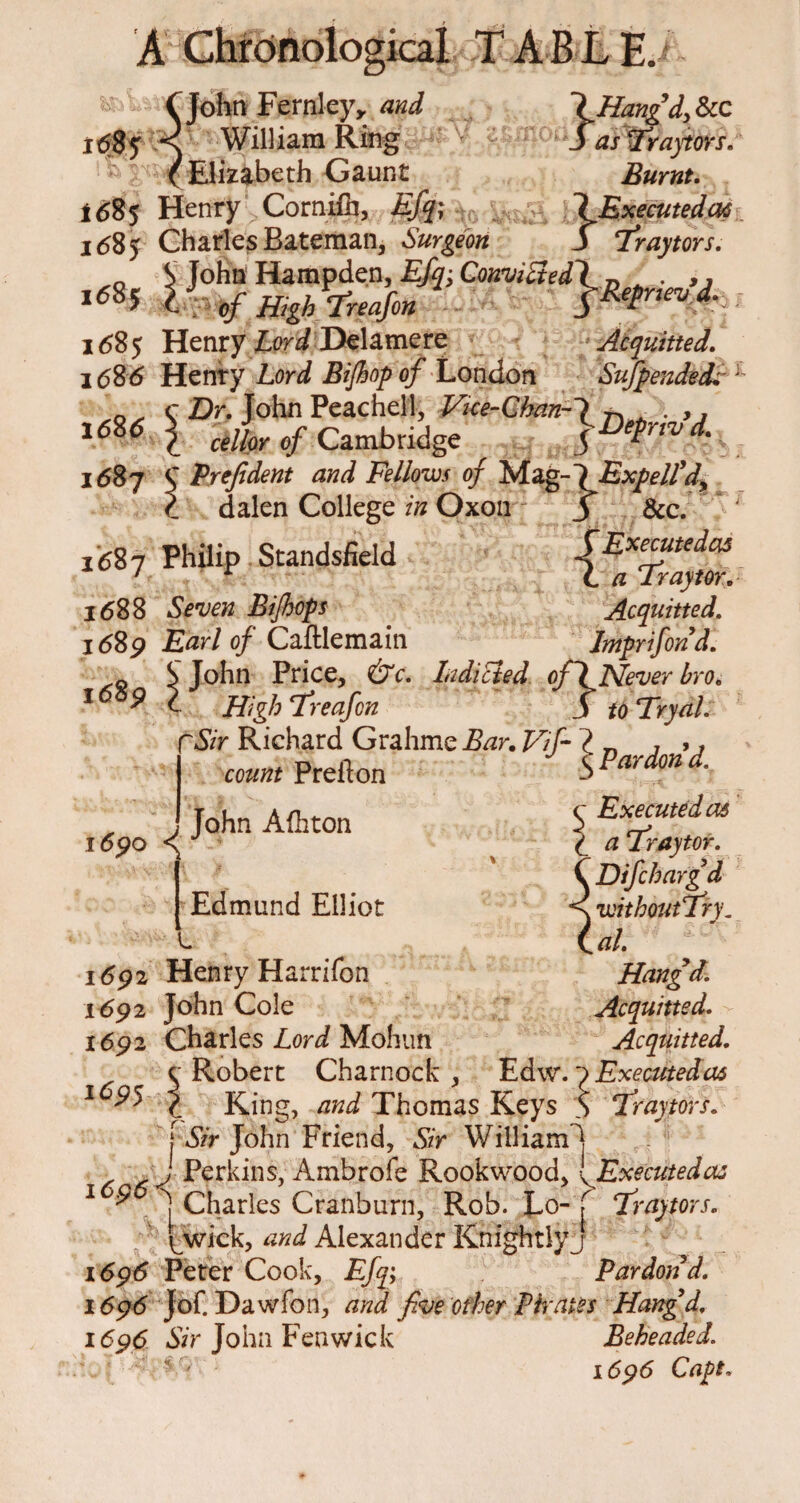 A Chronological TABLE.
1685 { John Fernley, and } Hang'd, &c
William Ring } as Traytors.
Elizabeth Gaunt Burnt.
1685 Henry Corniſh, Eſq; } Executed as
1685 Charles Bateman, Surgeon } Traytors.
1685 { John Hampden, Eſq; Convicted } Repriev'd.
of High Treaſon
1685 Henry Lord Delamere Acquitted.
1686 Henry Lord Biſhop of London Suſpended.
1686 { Dr. John Peachell, Vice-Chan- } Depriv'd.
cellor of Cambridge
1687 { Preſident and Fellows of Mag- } Expell'd,
dalen College in Oxon } &c.
1687 Philip Standsfield { Executed as
a Traytor.
1688 Seven Biſhops Acquitted.
1689 Earl of Caſtlemain Impriſon'd.
1689 { John Price, &c. Indicted of } Never bro.
High Treaſon } to Tryal.
1690 { Sir Richard Grahme Bar. Viſ- } Pardon'd.
count Preſton
John Aſhton { Executed as
a Traytor.
{ Diſcharg'd
Edmund Elliot without Try-
al.
1692 Henry Harriſon Hang'd.
1692 John Cole Acquitted.
1692 Charles Lord Mohun Acquitted.
1695 { Robert Charnock, Edw. } Executed as
King, and Thomas Keys } Traytors.
1696 { Sir John Friend, Sir William }
Perkins, Ambroſe Rookwood, } Executed as
Charles Cranburn, Rob. Lo- } Traytors.
wick, and Alexander Knightly }
1696 Peter Cook, Eſq; Pardon'd.
1696 Joſ. Dawſon, and five other Pirates Hang'd.
1696 Sir John Fenwick Beheaded.
1696 Capt.